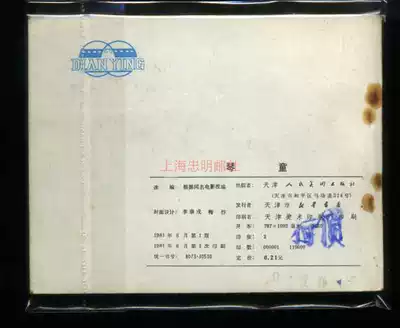 DIANYING
上海忠明邮社
琴 童
改编 根据同名电影改编
出版者: 天津人民美术出版社
(天津市和平区马场道214号)
封面设计: 李恭戌 梅 竹
发行者 天津市新华书店
印刷者 天津美术印刷
开本: 787×1092
1981年6月第1版
1981年6月第1次印刷
印张: 2
印数: 000001
统一书号: 8073·20533
定价: 0.21元